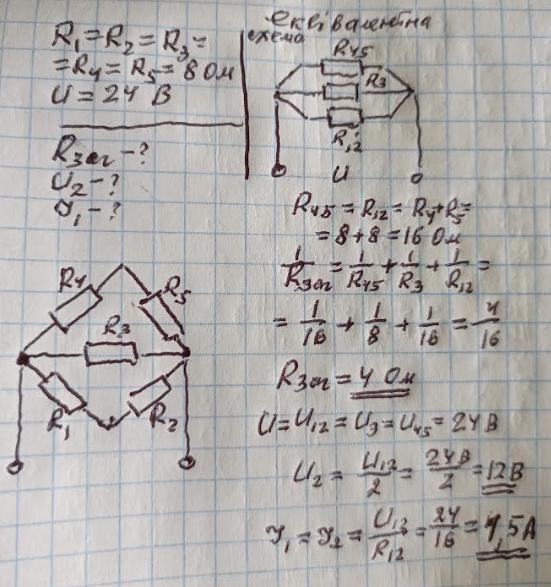 R₁ = R₂ = R₃ =
= R₄ = R₅ = 8 Ом
U = 24 В
Rзаг - ?
U₂ - ?
I₁ - ?
R₄
R₅
R₃
R₁
R₂
Еквівалентна
схема
R₄₅
R₃
R₁₂
U
R₄₅ = R₁₂ = R₄ + R₅ =
= 8 + 8 = 16 Ом
1/Rзаг = 1/R₄₅ + 1/R₃ + 1/R₁₂ =
= 1/16 + 1/8 + 1/16 = 4/16
Rзаг = 4 Ом
U = U₁₂ = U₃ = U₄₅ = 24 В
U₂ = U₁₂/2 = 24В/2 = 12В
I₁ = I₂ = U₁₂/R₁₂ = 24/16 = 1,5 А